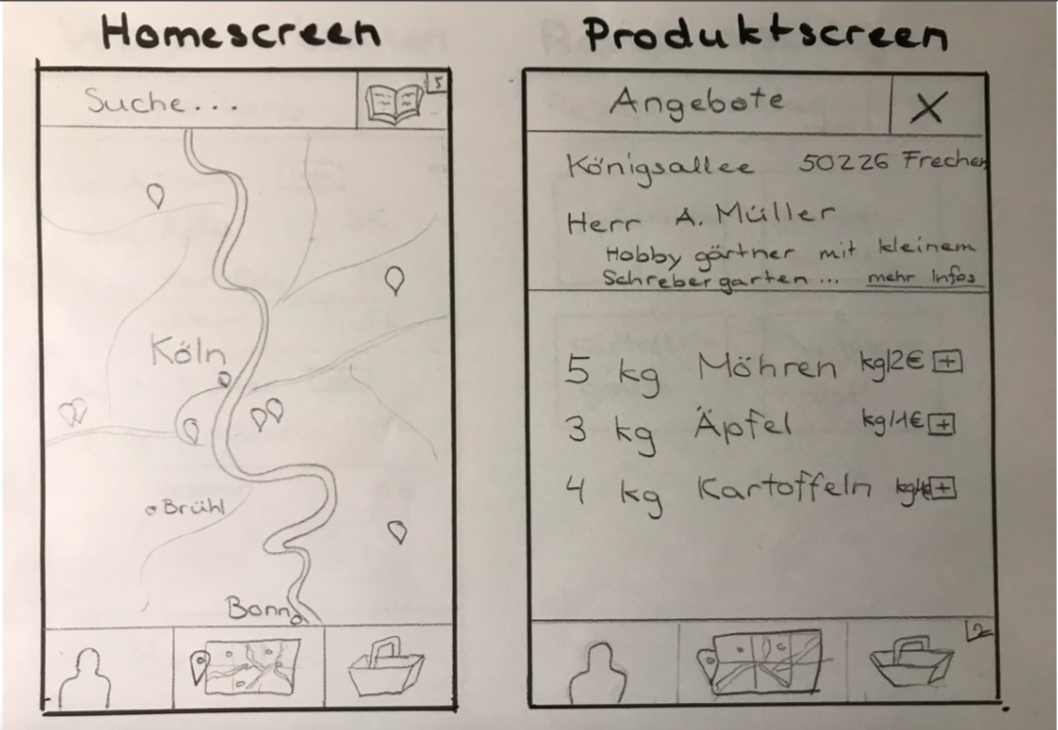 Homescreen
Suche...
5
Köln
Brühl
Bonn
Produktscreen
Angebote X
Königsallee 50226 Freche
Herr A. Müller
Hobby gärtner mit kleinem
Schrebergarten... mehr Infos
5 kg Möhren kg/2€ +
3 kg Äpfel kg/1€ +
4 kg Kartoffeln +
2